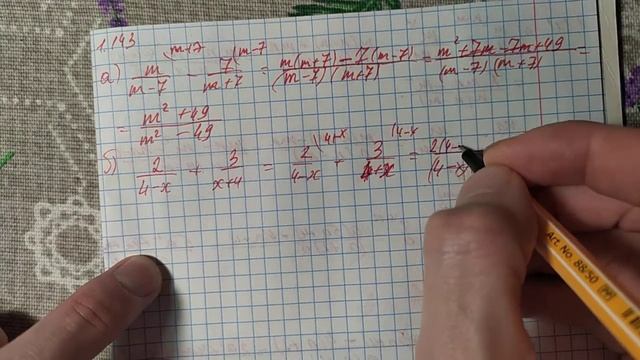 1.143
a) m/(m-7) \m+7 - 7/(m+7) \m-7 = (m(m+7) - 7(m-7))/((m-7)(m+7)) = (m² + 7m - 7m + 49)/((m-7)(m+7)) =
= (m² + 49)/(m² - 49)
б) 2/(4-x) + 3/(x+4) = 2/(4-x) \4+x + 3/(4+x) \4-x = 2(4-
(4-x)
Art. No. 88/50